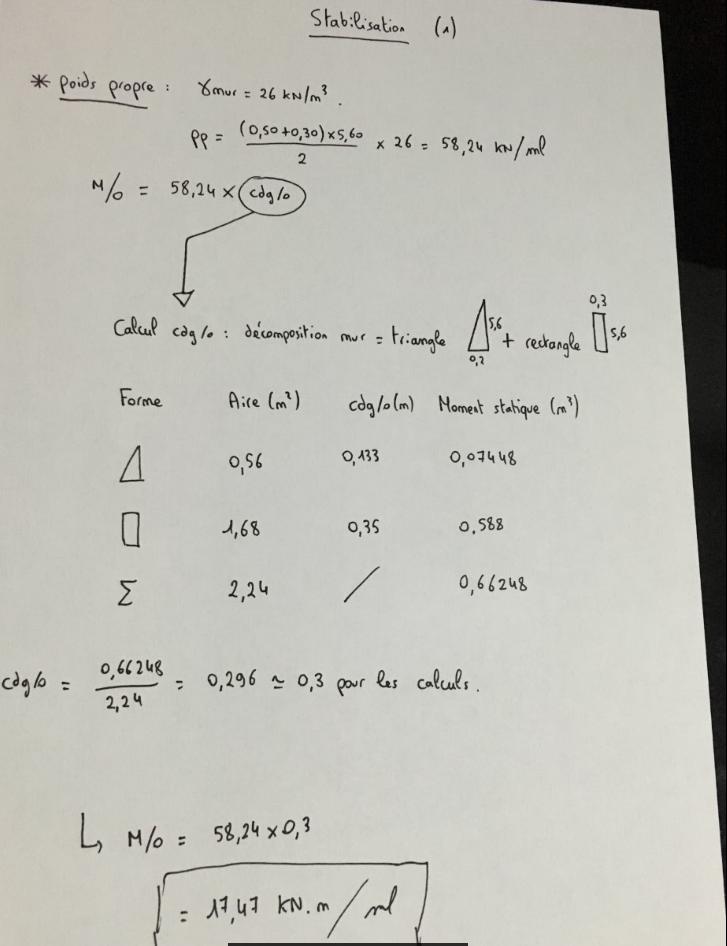 Stabilisation (1)
* Poids propre : γmur = 26 kN/m³.
PP = (0,50+0,30)×5,60 / 2 × 26 = 58,24 kN/ml
M/o = 58,24 × cdg/o
Calcul cdg/o : décomposition mur = triangle 5,6 0,2 + rectangle 0,3 5,6
Forme Aire (m²) cdg/o (m) Moment statique (m³)
0,56 0,133 0,07448
1,68 0,35 0,588
Σ 2,24 / 0,66248
cdg/o = 0,66248 / 2,24 = 0,296 ≃ 0,3 pour les calculs.
↳ M/o = 58,24 × 0,3
= 17,47 KN.m/ml